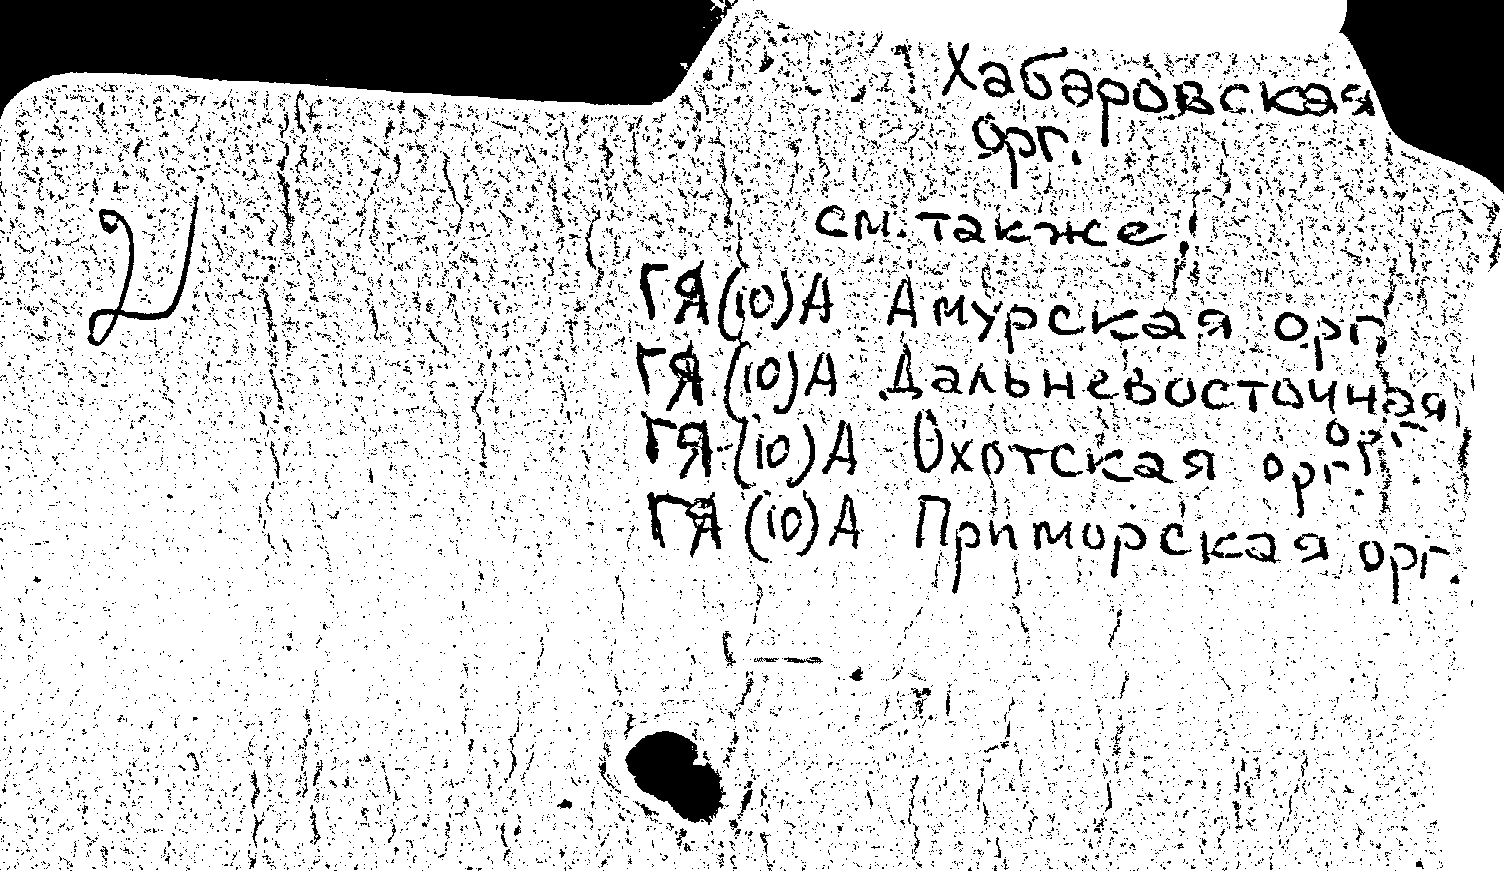 Хабаровская
орг.
см. также:
ГЯ(10)А Амурская орг.
ГЯ(10)А Дальневосточная
орг.
ГЯ(10)А Охотская орг.
ГЯ(10)А Приморская орг.